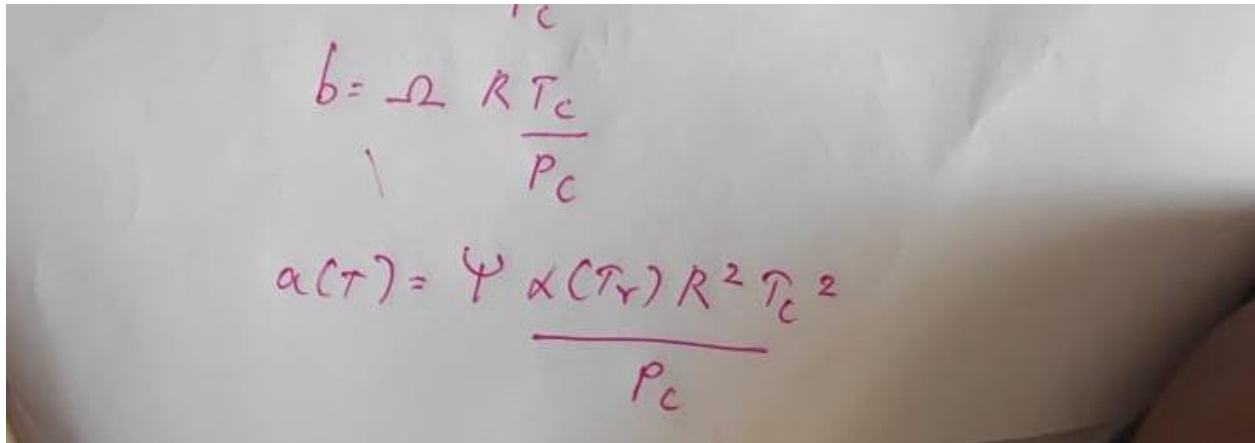 b = Ω R T_c / P_c
a(T) = Ψ α(T_r) R² T_c² / P_c